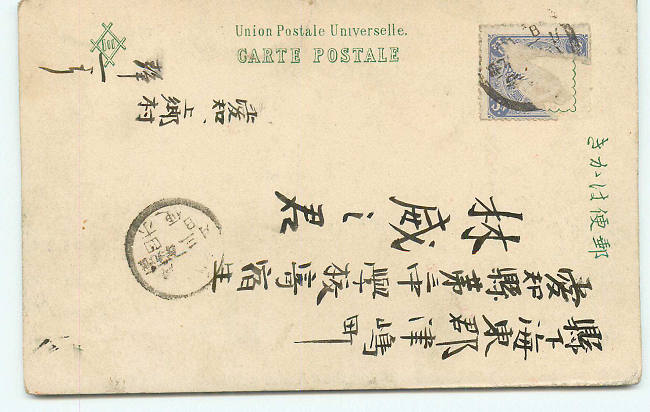 Union Postale Universelle.
CARTE POSTALE
郵便はかき
縣下海東郡津嶋町
愛知縣第三中學校寄宿
林威之君
愛知、上郷村